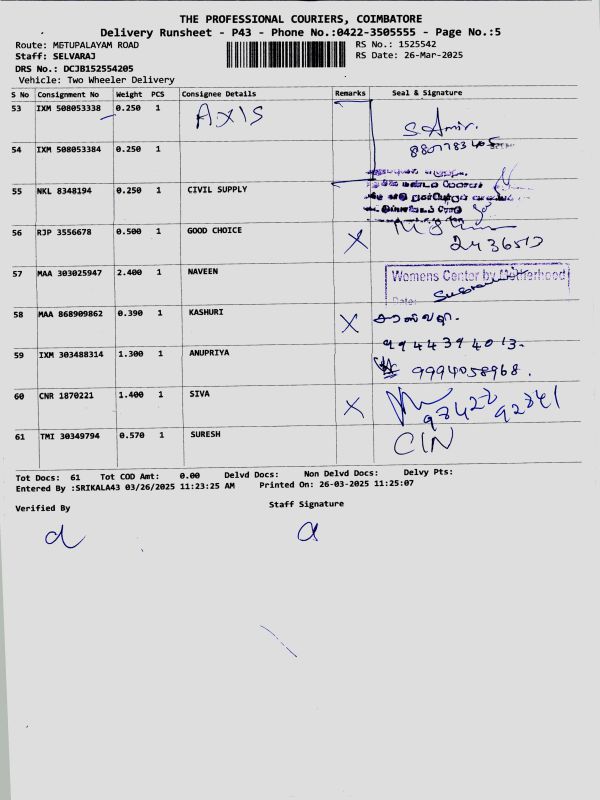 THE PROFESSIONAL COURIERS, COIMBATORE
Delivery Runsheet - P43 - Phone No.:0422-3505555 - Page No.:5
Route: METUPALAYAM ROAD
Staff: SELVARAJ
RS No.: 1525542
RS Date: 26-Mar-2025
DRS No.: DCJB152554205
Vehicle: Two Wheeler Delivery
S No Consignment No Weight PCS Consignee Details Remarks Seal & Signature
53 IXM 508053338 0.250 1 AXIS
S.Amir.
54 IXM 508053384 0.250 1
55 NKL 8348194 0.250 1 CIVIL SUPPLY
56 RJP 3556678 0.500 1 GOOD CHOICE X
57 MAA 303025947 2.400 1 NAVEEN Womens Center by Motherhood
Date:
58 MAA 868909862 0.390 1 KASHURI X
9944394013.
59 IXM 303488314 1.300 1 ANUPRIYA
9994058968.
60 CNR 1870221 1.400 1 SIVA X
61 TMI 30349794 0.570 1 SURESH CIN
Tot Docs: 61 Tot COD Amt: 0.00 Delvd Docs: Non Delvd Docs: Delvy Pts:
Entered By :SRIKALA43 03/26/2025 11:23:25 AM Printed On: 26-03-2025 11:25:07
Verified By Staff Signature